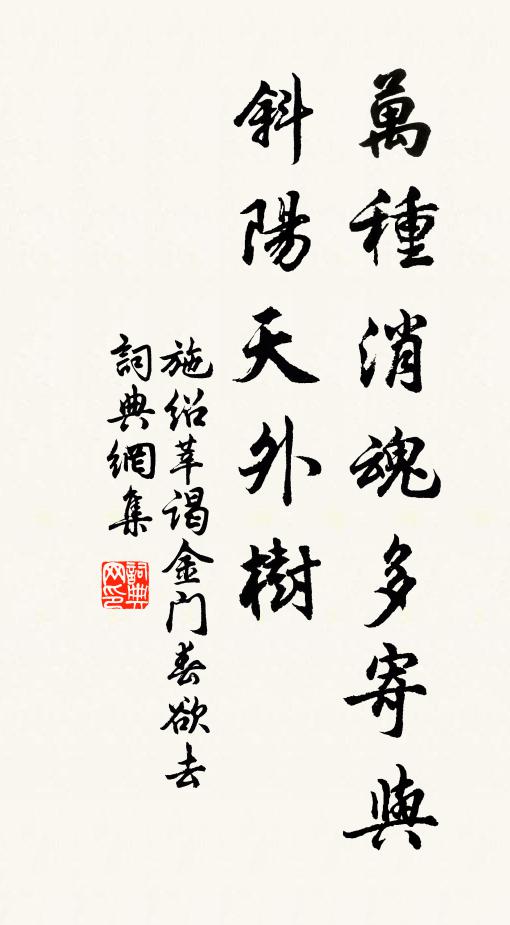 萬種消魂多寄與
斜陽天外樹
施绍莘谒金门春欲去
詞典網集
詞典网印